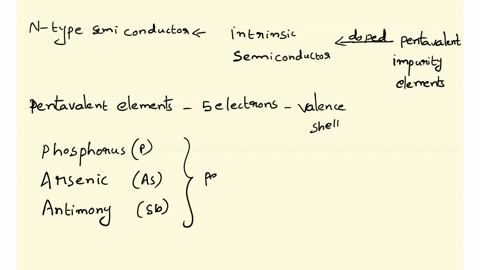 N-type semiconductor ← intrinsic semiconductor ← doped pentavalent impurity elements
Pentavalent elements - 5 electrons - valence shell
Phosphorus (P)
Arsenic (As)
Antimony (Sb)